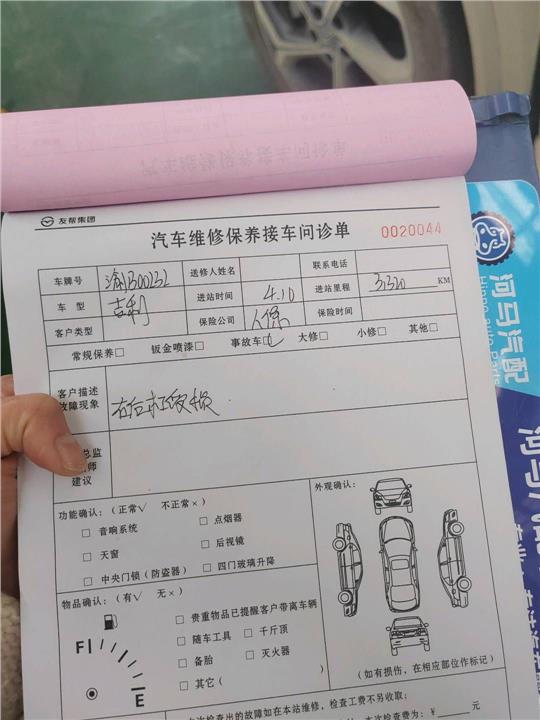 友帮集团
汽车维修保养接车问诊单 0020044
车牌号 送修人姓名 联系电话
车 型 吉利 进站时间 4.10 进站里程 KM
客户类型 保险公司 人保 保险时间
常规保养□ 钣金喷漆□ 事故车□ 大修□ 小修□ 其他□
客户描述
故障现象
右后杠受损
总监
师
建议
功能确认：（正常√ 不正常×） 外观确认：
□ 音响系统 □ 点烟器
□ 天窗 □ 后视镜
□ 中央门锁（防盗器） □ 四门玻璃升降
物品确认：（有√ 无×）
□ 贵重物品已提醒客户带离车辆
□ 随车工具 □ 千斤顶
□ 备胎 □ 灭火器
□ 其它（ ）
F
E
（如有损伤，在相应部位作标记）
检查出的故障如在本站维修，检查工费不另收取；
本次检查费为：￥ 元
河马汽配
Parts
河马